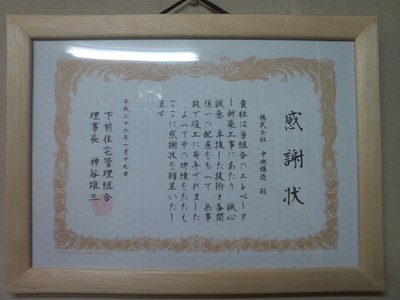 感謝状
株式会社 中央構造 殿
貴社は当組合のエレベータ
ー新築工事にあたり 誠心
誠意 卓抜した技術と各関
係への配慮をもって 無事
故で竣工に寄与されました
よってその功績をたたえ
ここに感謝状を贈呈いたし
ます
平成二十六年一月十九日
下前住宅管理組合
理事長 神谷雄三